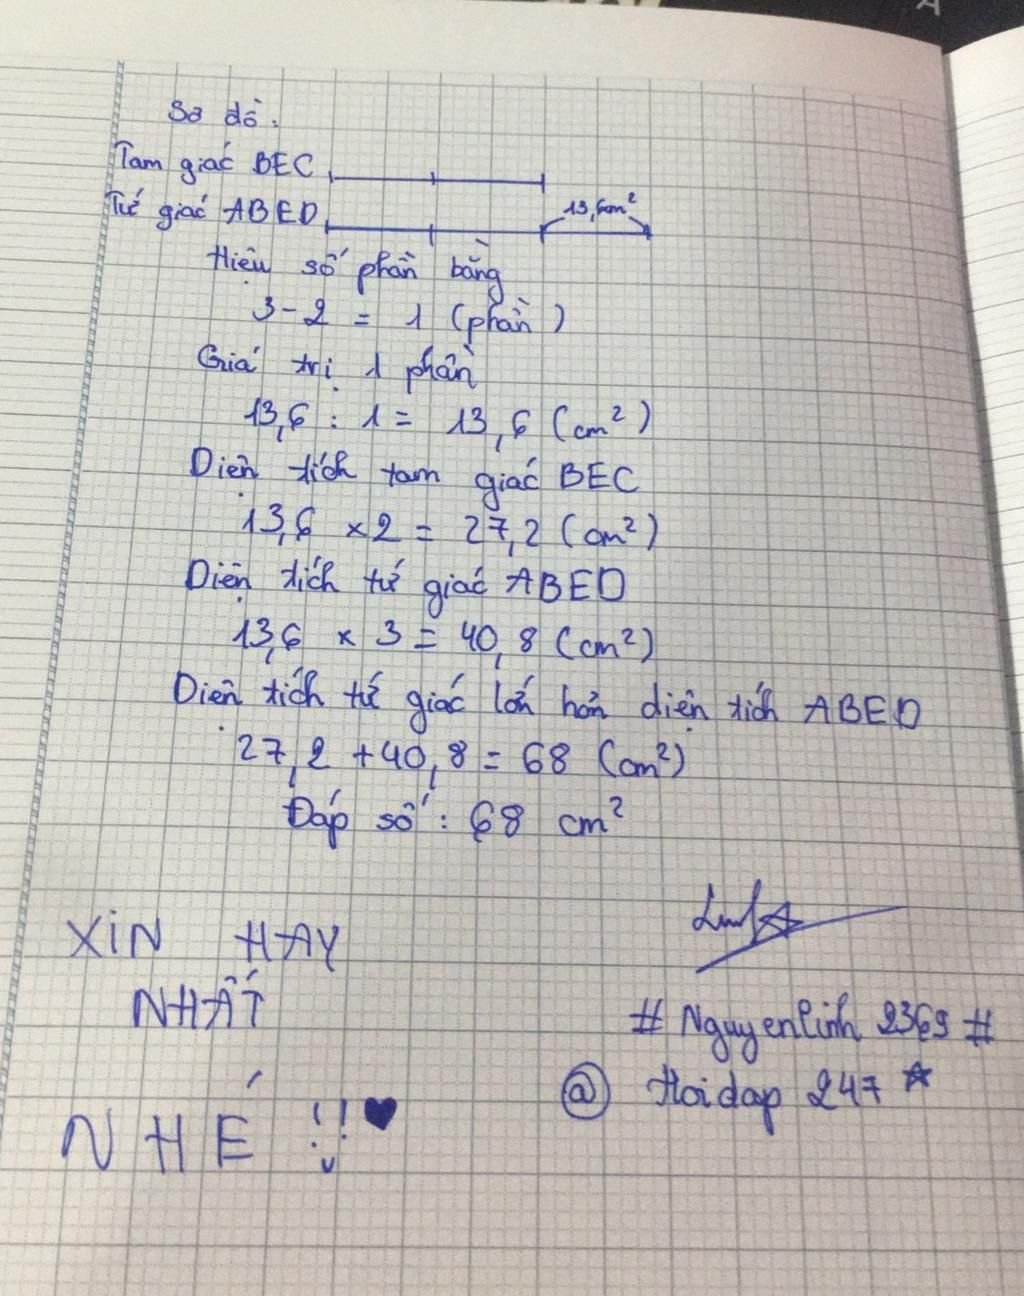 Sơ đồ:
Tam giác BEC
Tứ giác ABED 13,6cm²
Hiệu số phần bằng
3-2 = 1 (phần)
Giá trị 1 phần
13,6 : 1 = 13,6 (cm²)
Diện tích tam giác BEC
13,6 x 2 = 27,2 (cm²)
Diện tích tứ giác ABED
13,6 x 3 = 40,8 (cm²)
Diện tích tứ giác lớn hơn diện tích ABED
27,2 + 40,8 = 68 (cm²)
Đáp số: 68 cm²
XIN HAY
NHẤT
NHÉ !!
# Nguyenlinh 2369 #
@ Hoidap 247